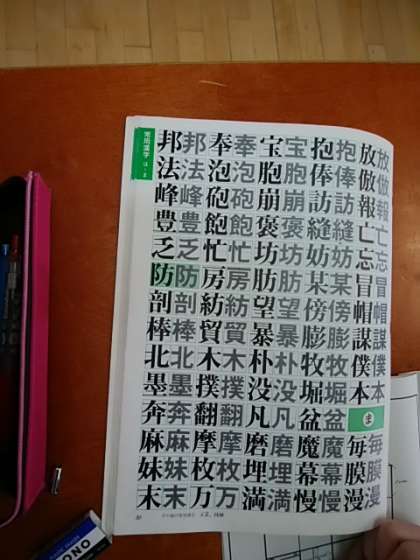 常用漢字
邦邦奉奉宝宝抱抱放放
法法泡泡胞胞俸俸倣倣
峰峰砲砲崩崩訪訪報報
豊豊飽飽褒褒縫縫亡亡
乏乏忙忙坊坊妨妨忘忘
防防房房肪肪某某冒冒
剖剖紡紡望望傍傍帽帽
棒棒貿貿暴暴膨膨謀謀
北北木木朴朴牧牧僕僕
墨墨撲撲没没堀堀本本
奔奔翻翻凡凡盆盆 ま
麻麻摩摩磨磨魔魔毎毎
妹妹枚枚埋埋幕幕膜膜
末末万万満満慢慢漫漫